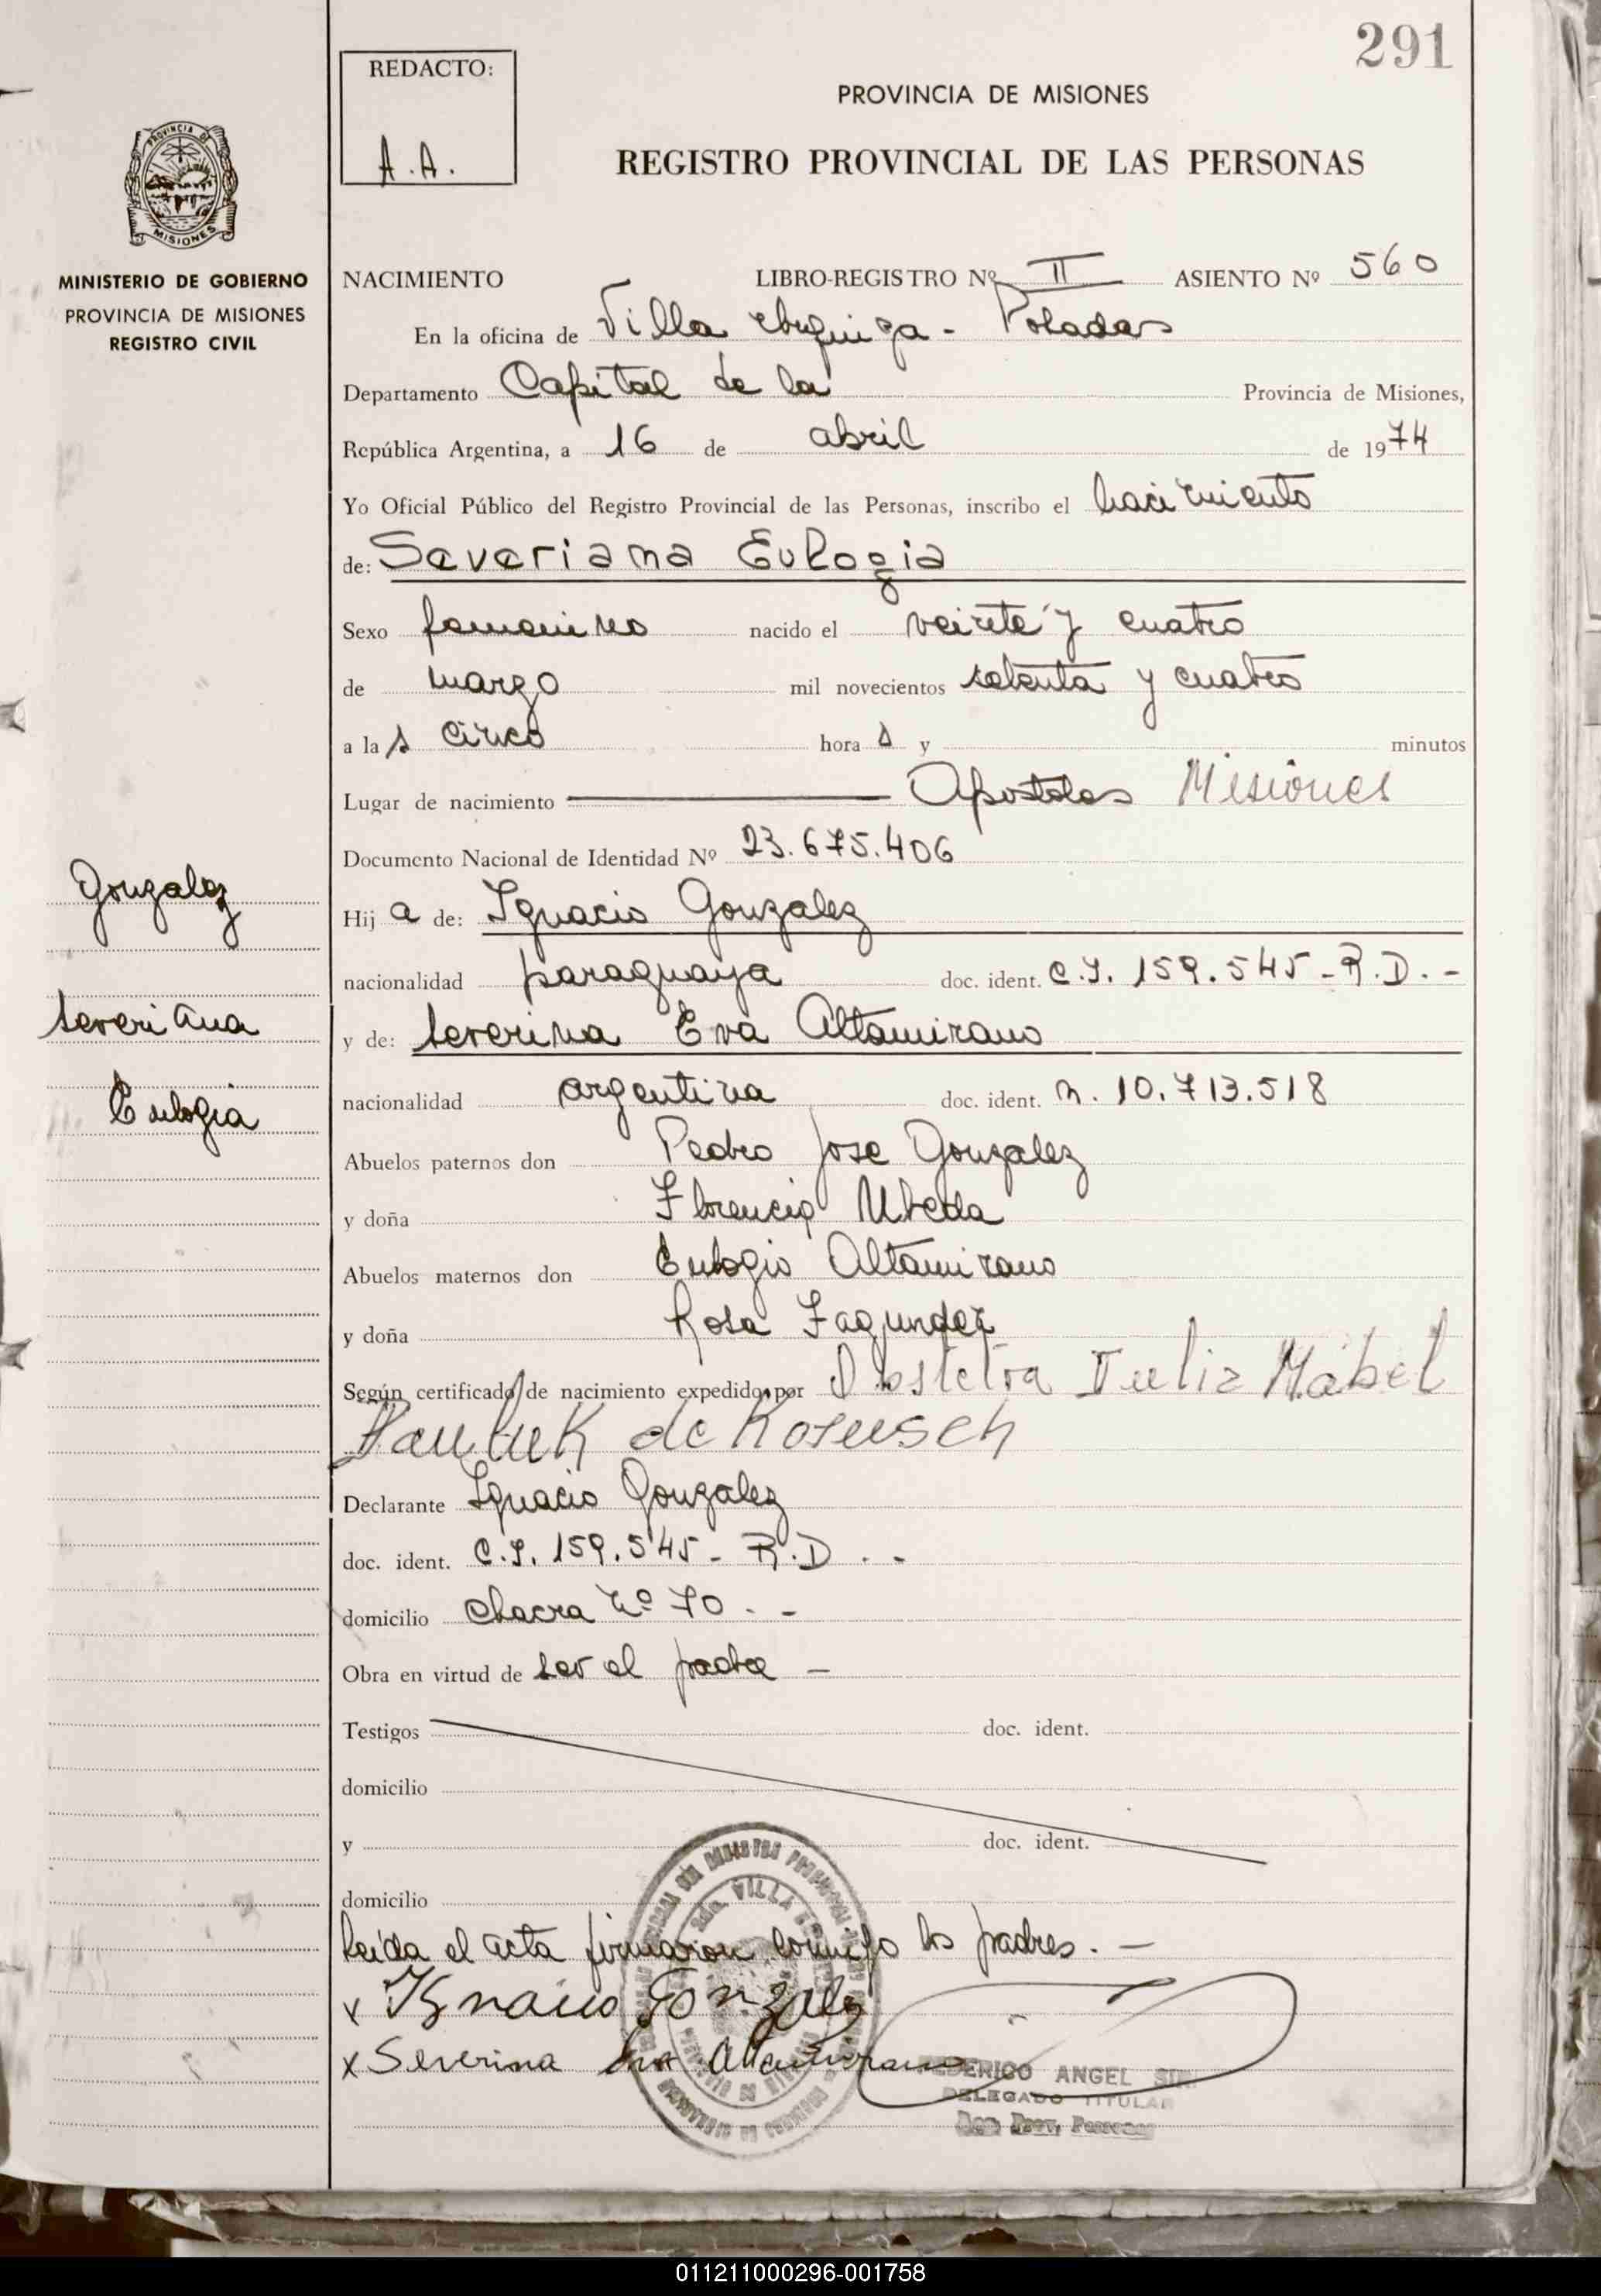 291
REDACTO:
A.A.
PROVINCIA DE MISIONES
REGISTRO PROVINCIAL DE LAS PERSONAS
MINISTERIO DE GOBIERNO
PROVINCIA DE MISIONES
REGISTRO CIVIL
NACIMIENTO LIBRO-REGISTRO Nº II ASIENTO Nº 560
En la oficina de Villa Urquiza - Posadas
Departamento Capital de la Provincia de Misiones,
República Argentina, a 16 de abril de 1974
Yo Oficial Público del Registro Provincial de las Personas, inscribo el nacimiento
de: Severiana Eulogia
Sexo femenino nacido el veinte y cuatro
de marzo mil novecientos setenta y cuatro
a la s cinco hora s y minutos
Lugar de nacimiento Apostoles Misiones
Documento Nacional de Identidad Nº 23.675.406
Gonzalez
Hij a de: Ignacio Gonzalez
nacionalidad paraguaya doc. ident. C.I. 159.545 - R.D. -
Severiana
y de: Severina Eva Altamirano
Eulogia
nacionalidad argentina doc. ident. n. 10.713.518
Abuelos paternos don Pedro Jose Gonzalez
y doña Florencia Ubeda
Abuelos maternos don Eulogio Altamirano
y doña Rosa Fagundez
Según certificado de nacimiento expedido por Obstetra Julia Mabel
de
Declarante Ignacio Gonzalez
doc. ident. C.I. 159.545 - R.D. -
domicilio chacra Nº 70. -
Obra en virtud de ser el padre -
Testigos doc. ident.
domicilio
y doc. ident.
domicilio
Leida el acta firmaron conmigo los padres. -
x Ignacio Gonzalez
x Severina Eva Altamirano
FEDERICO ANGEL
DELEGADO TITULAR
VILLA
MISIONES
011211000296-001758